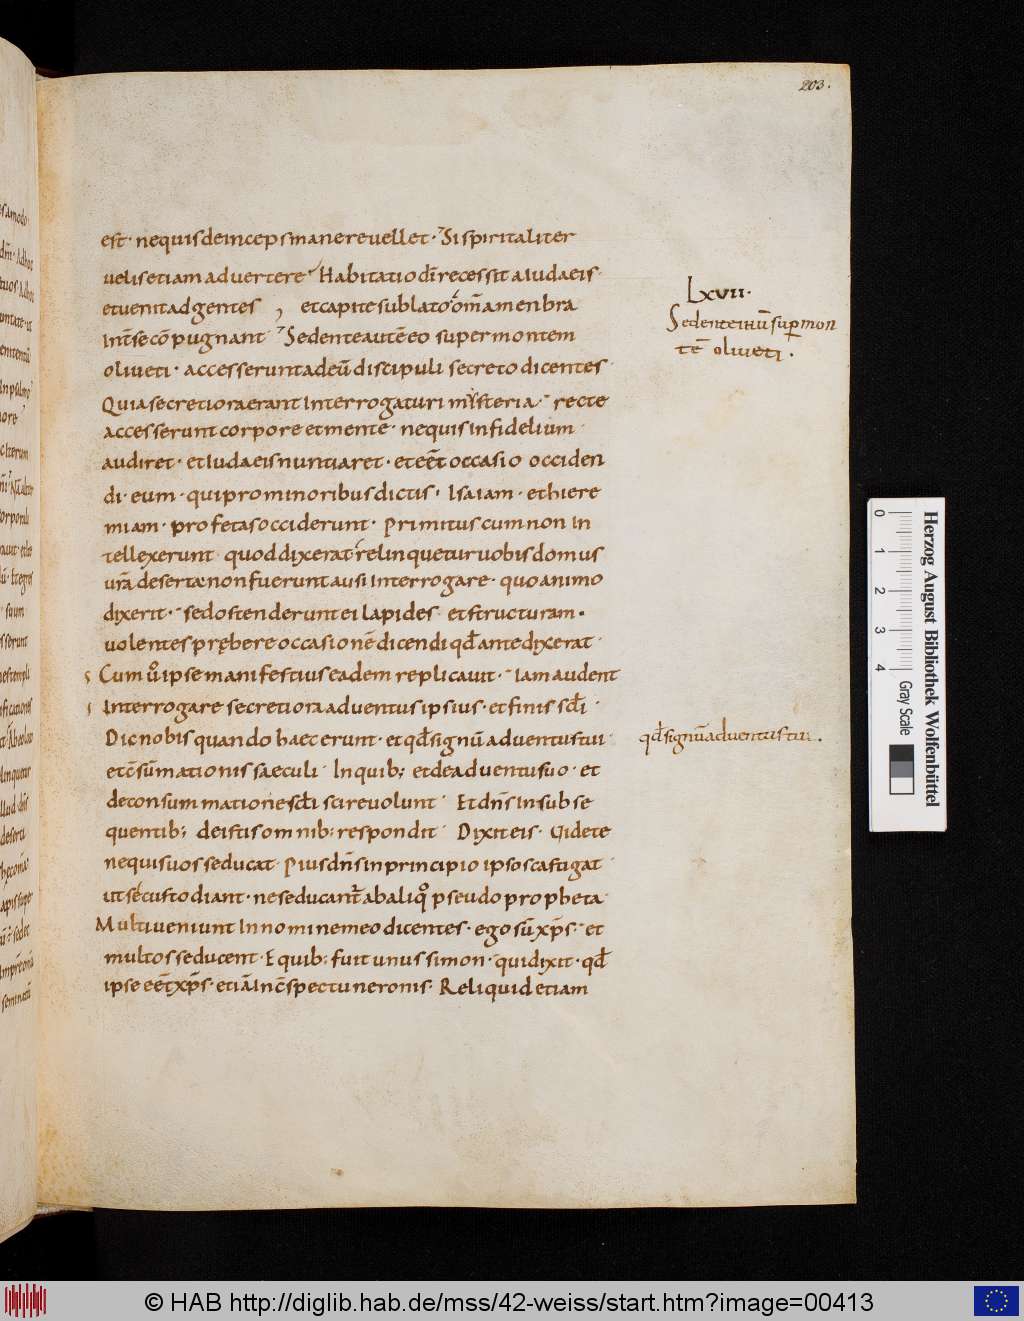 203.
est· nequisdeincepsmanereuellet· Sispiritaliter
uelisetiamaduertere Habitatiodīrecessit aIudaeis·
etuenitadgentes, etcapitesublato om̄amenbra
Int̄secōpugnant Sedenteautēeo supermontem
oliueti· accesseruntadeū discipuli secreto dicentes·
Quiasecretioraerant Interrogaturi mysteria· recte
accesserunt corpore etmente· nequisinfidelium
audiret· etIudaeisnuntiaret· eteēt occasio occiden
di· eum· quiprominoribusdictis· Isaiam· ethiere
miam· profetasocciderunt· Primituscumnon In
tellexerunt· quoddixerat relinqueturuobisdomus
urādesertanonfueruntausi Interrogare· quoanimo
dixerit· sedostenderuntei lapides· etstructuram·
uolentesprębere occasionēdicendi qđantedixerat·
Cum ipsemanifestiuseadem replicauit· Iamaudent
Interrogare secretioraaduentusipsius· etfinis scłi
Dicnobisquando haecerunt· etqđsignū aduentustui·
etcōsūmationissaeculi· Inquib; etdeaduentusuo· et
deconsummationescłi scireuolunt· Etdn̄sInsubse
quentib; deistisomnib; respondit· Dixiteis· Uidete
nequisuosseducat· Piusdn̄sinprincipio ipsoscastigat·
utsecustodiant· neseducant̄abaliq pseudopropheta·
Multiueniunt Innominemeo dicentes· egosūxp̄s· et
multosseducent· Equib; fuit unussimon· quidixit· qđ
ipse eēt xp̄s· etiāIncōspectuneronis· Reliquid etiam
Lxvii·
Sedenteihū supermon
tē oliueti·
qđsignūaduentustui·
0 1 2 3 4
Gray Scale
Herzog August Bibliothek Wolfenbüttel
© HAB http://diglib.hab.de/mss/42-weiss/start.htm?image=00413